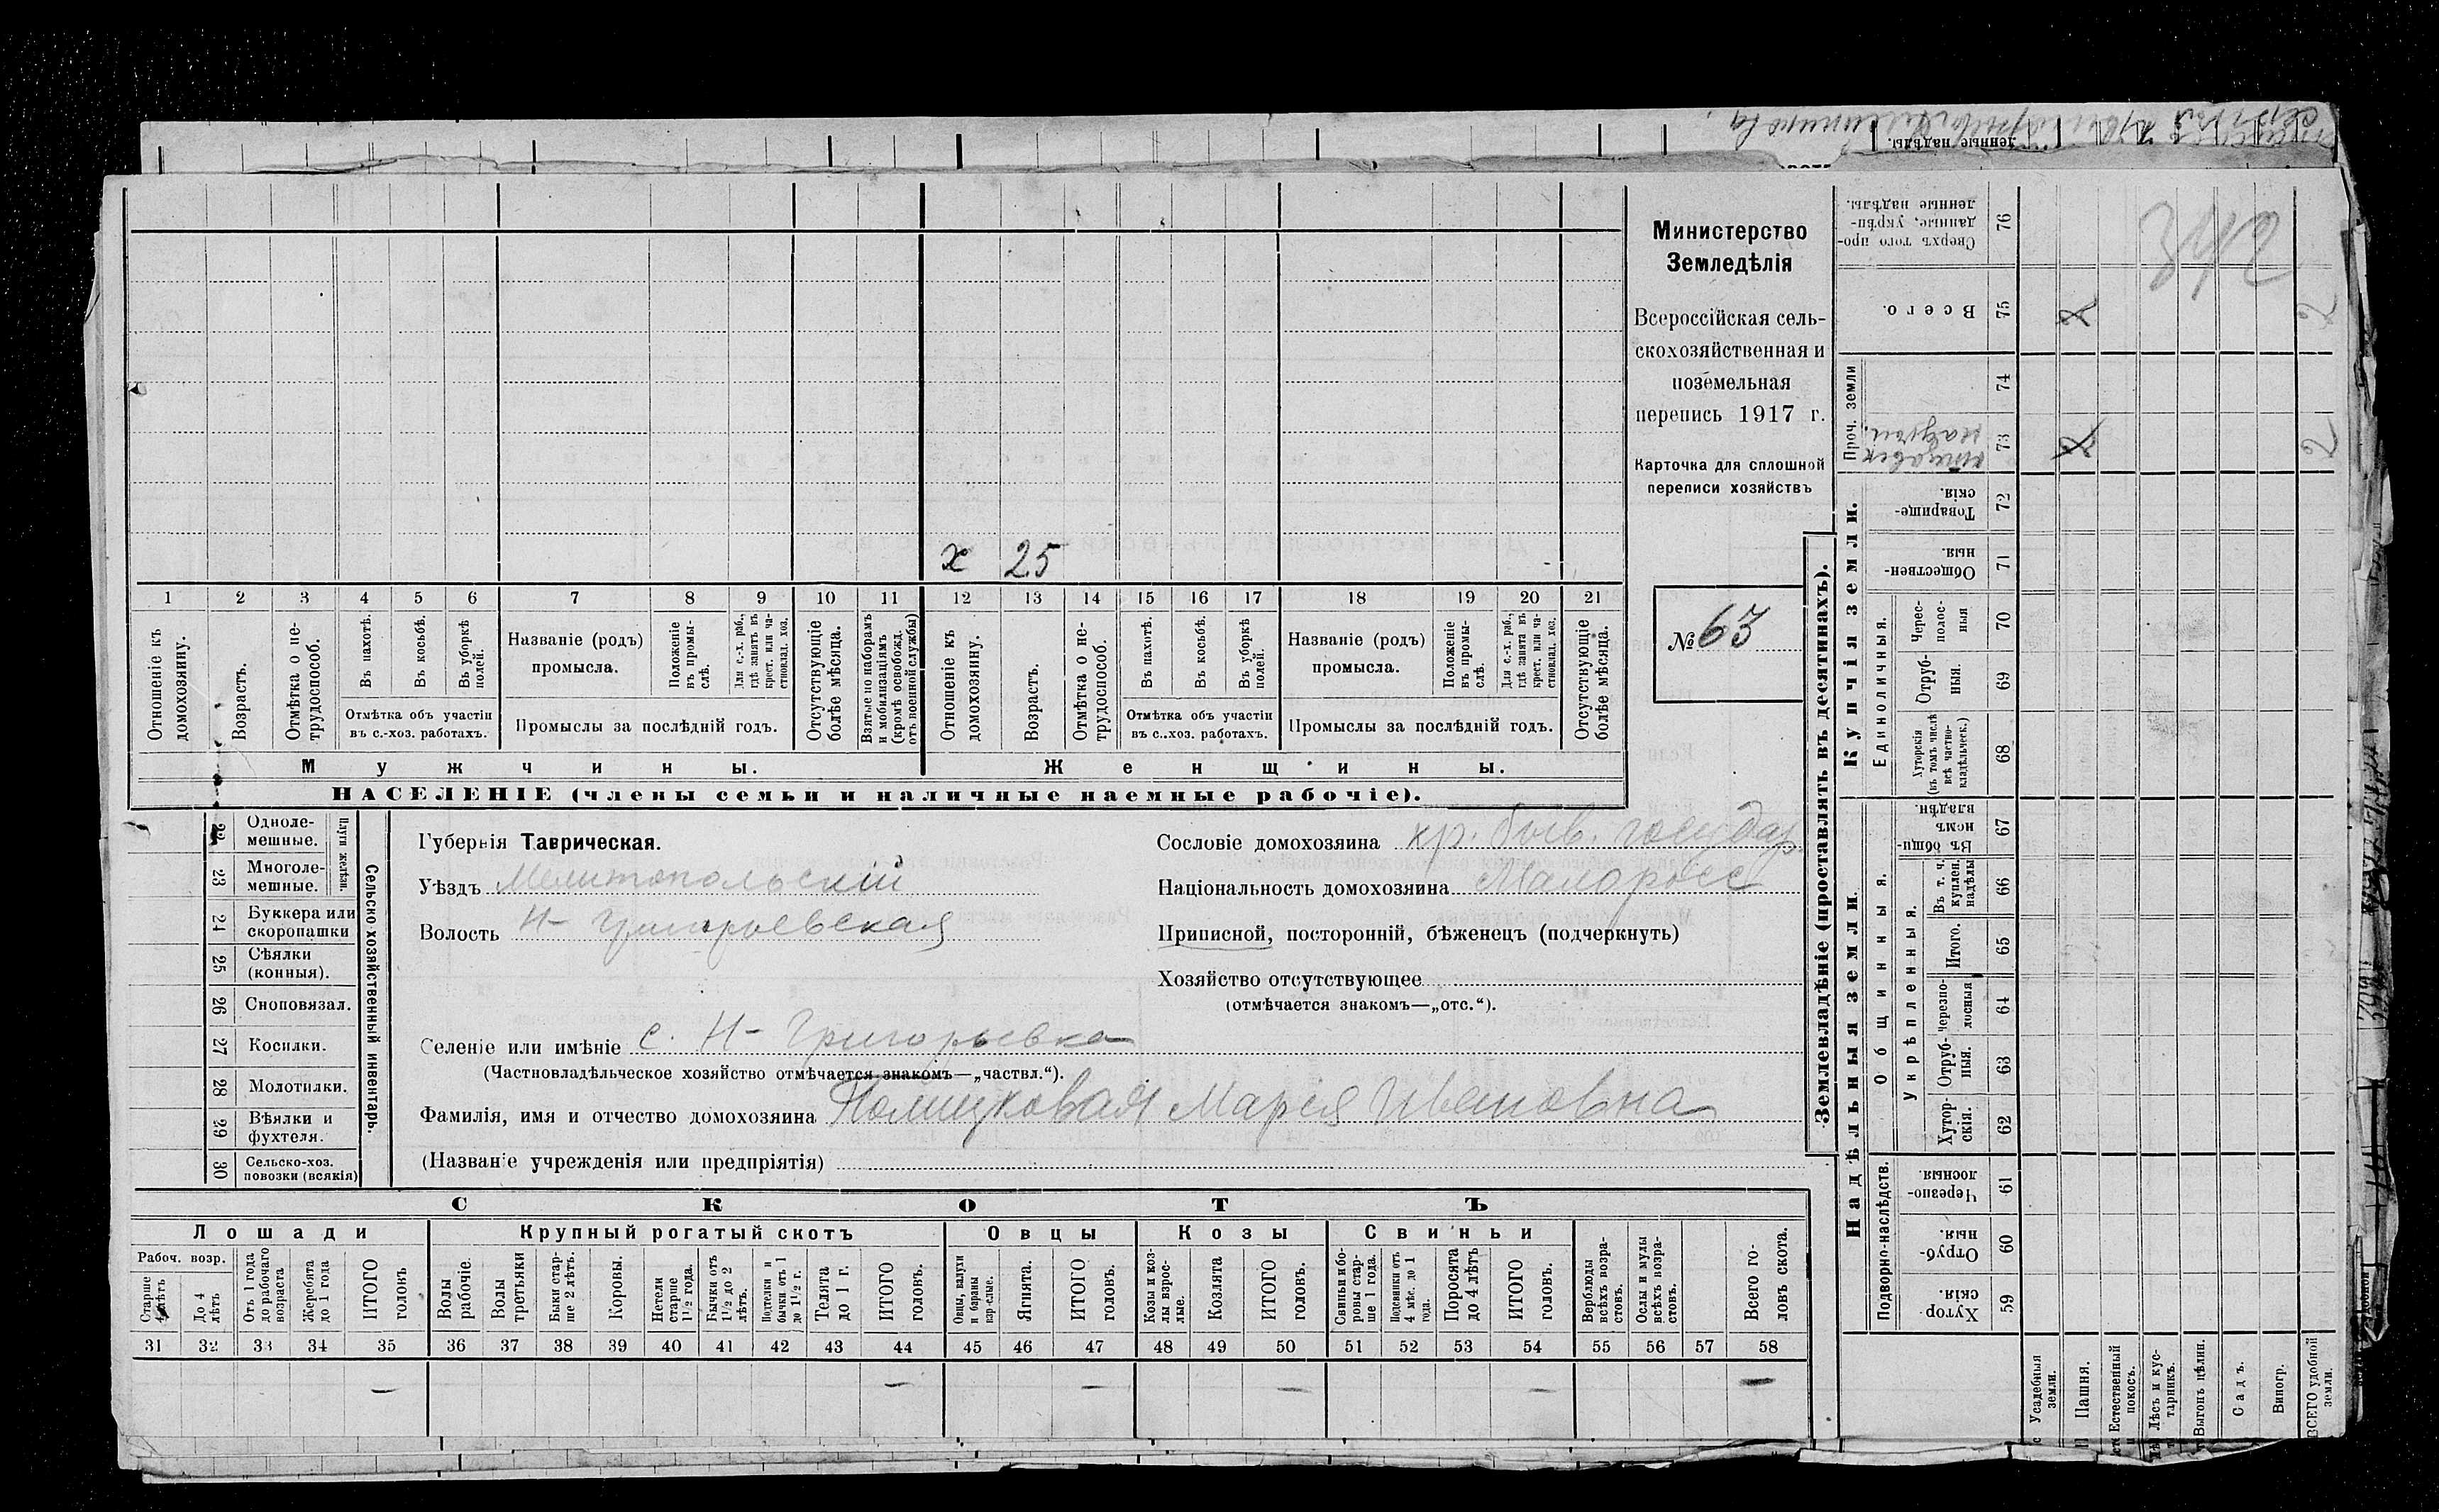 Министерство
Земледѣлія
Всероссійская сель-
скохозяйственная и
поземельная
перепись 1917 г.
Карточка для сплошной
переписи хозяйствъ
№ 63
х 25
1 2 3 4 5 6 7 8 9 10 11 12 13 14 15 16 17 18 19 20 21
Отношеніе къ домохозяину.
Возрастъ.
Отмѣтка о не-трудоспособ.
Въ пахотѣ.
Въ косьбѣ.
Въ уборкѣ полей.
Отмѣтка объ участіи
въ с.-хоз. работахъ.
Названіе (родъ)
промысла.
Положеніе въ промы-слѣ.
Для с.-х. раб., гдѣ занятъ въ крест. или ча-стновлад. хоз.
Промыслы за послѣдній годъ.
Отсутствующіе болѣе мѣсяца.
Взятые по наборамъ и мобилизаціямъ (кромѣ освобожд. отъ военной службы)
Отношеніе къ домохозяину.
Возрастъ.
Отмѣтка о не-трудоспособ.
Въ пахотѣ.
Въ косьбѣ.
Въ уборкѣ полей.
Отмѣтка объ участіи
въ с..хоз. работахъ.
Названіе (родъ)
промысла.
Положеніе въ промы-слѣ.
Для с.-х. раб., гдѣ занята въ крест. или ча-стновлад. хоз.
Промыслы за послѣдній годъ.
Отсутствующіе болѣе мѣсяца.
Мужчины.
Женщины.
НАСЕЛЕНІЕ (члены семьи и наличные наемные рабочіе).
Сельско хозяйственный инвентарь.
Плуги желѣзн.
Одноле-мешные.
23 Многоле-мешные.
24 Буккера или скоропашки
25 Сѣялки (конныя).
26 Сноповязал.
27 Косилки.
28 Молотилки.
29 Вѣялки и фухтеля.
30 Сельско-хоз. повозки (всякія)
Губернія Таврическая.
Уѣздъ Мелитопольскій
Волость Н-Григорьевская
Сословіе домохозяина кр. быв. государ.
Національность домохозяина Малоросс
Приписной, посторонній, бѣженецъ (подчеркнуть)
Хозяйство отсутствующее
(отмѣчается знакомъ—„отс.“).
Селеніе или имѣніе с. Н-Григорьевка
(Частновладѣльческое хозяйство отмѣчается знакомъ—„частвл.“).
Фамилія, имя и отчество домохозяина Марія Ивановна
(Названіе учрежденія или предпріятія)
СКОТЪ
Лошади
Крупный рогатый скотъ
Овцы
Козы
Свиньи
Рабоч. возр.
Старше 4 лѣтъ
До 4 лѣтъ
Отъ 1 года до рабочаго возраста
Жеребята до 1 года
ИТОГО головъ
Волы рабочіе.
Волы третьяки
Быки стар-ше 2 лѣтъ.
Коровы.
Нетели старше 1½ года.
Бычки отъ 1½ до 2 лѣтъ.
Подтелки и бычки отъ 1 до 1½ г.
Телята до 1 г.
ИТОГО головъ.
Овцы, валухи и бараны взрослые.
Ягнята.
ИТОГО головъ.
Козы и коз-лы взрос-лые.
Козлята
ИТОГО головъ.
Свиньи и бо-ровы стар-ше 1 года.
Подсвинки отъ 4 мѣс. до 1 года.
Поросята до 4 лѣтъ
ИТОГО головъ.
Верблюды всѣхъ возра-стовъ.
Ослы и мулы всѣхъ возра-стовъ.
Всего го-ловъ скота.
31 32 33 34 35 36 37 38 39 40 41 42 43 44 45 46 47 48 49 50 51 52 53 54 55 56 57 58
— — — — — —
Землевладѣніе (проставлять въ десятинахъ).
Купчія земли.
Надѣльныя земли.
Сверхъ того про-данные, укрѣп-ленные надѣлы. 76
Всего. 75
Проч. земли
74
73
Товарище-скія. 72
Обществен-ныя. 71
Единоличныя.
Черес-полос-ныя 70
Отруб-ныя. 69
Хуторскія (въ томъ числѣ всѣ частно-владѣльческ.) 68
Общинныя.
Въ общин-номъ владѣн. 67
Укрѣпленныя.
Въ т. ч. куплен. надѣлы 66
Итого. 65
Черезпо-лосныя 64
Отруб-ныя. 63
Хутор-скія. 62
Подворно-наслѣдств.
Черезпо-лосныя 61
Отруб-ныя. 60
Хутор-скія. 59
Усадебныя земли.
Пашня.
Естественный покосъ.
Лѣсъ и кус-тарникъ.
Выгонъ цѣлин.
Садъ.
Виногр.
ВСЕГО удобной земли.
2 2
2 2
денные надѣлы.